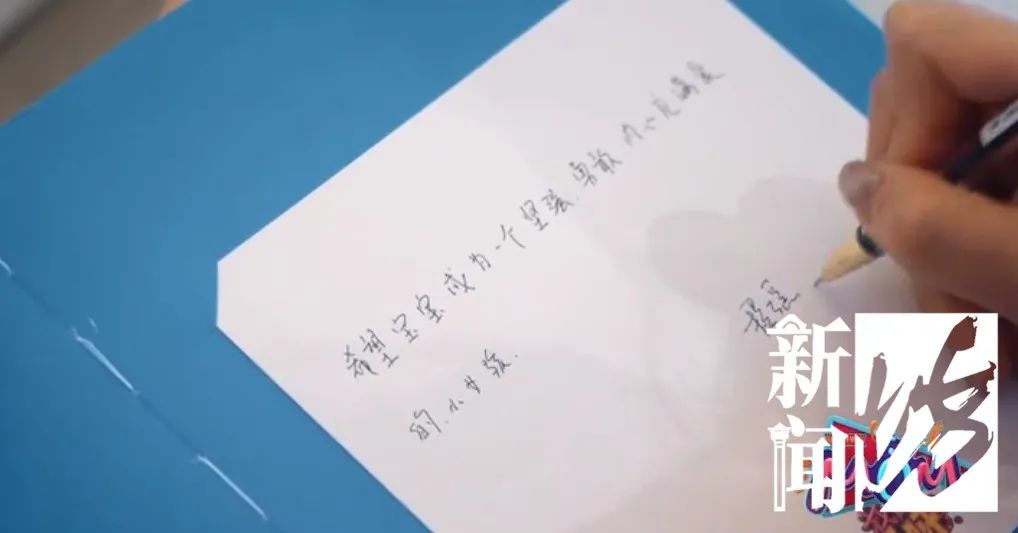 希望宝宝成为一个坚强、勇敢、内心充满爱
的小女孩.
新闻坊